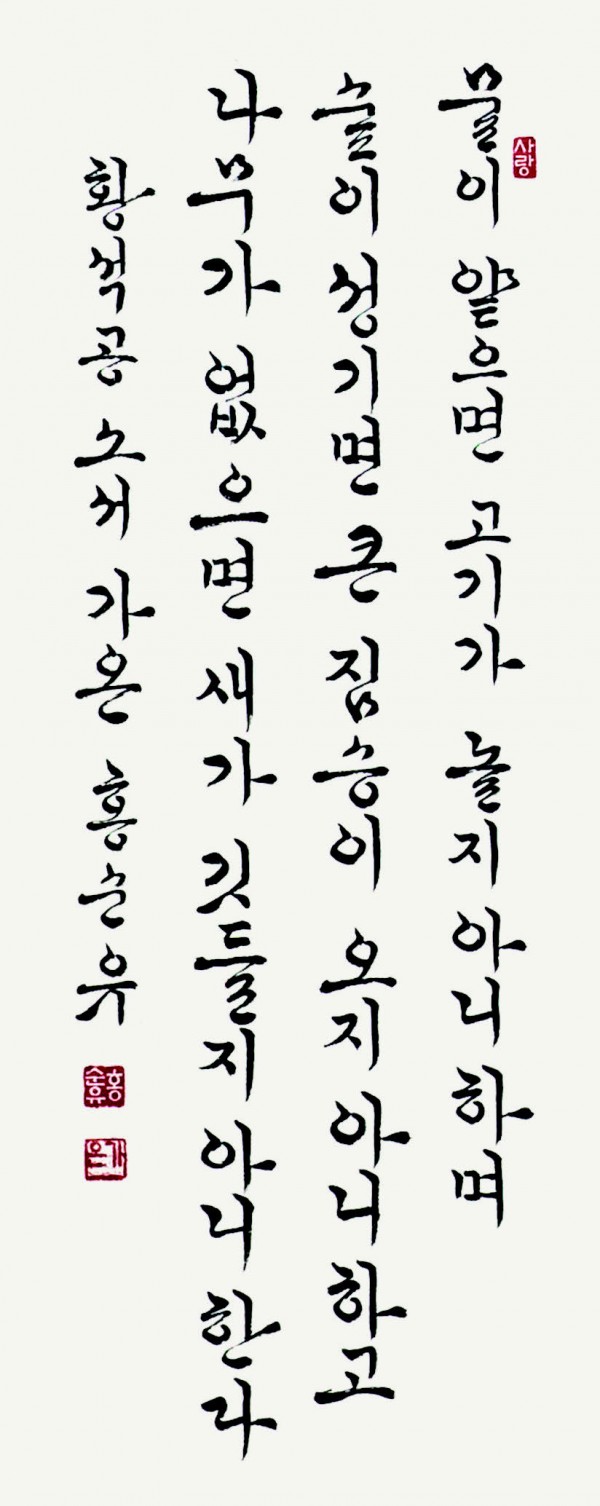 사랑
물이 얕으면 고기가 놀지 아니하며
숲이 성기면 큰 짐승이 오지 아니하고
나무가 없으면 새가 깃들지 아니한다
황석공 소서 가온 홍순유
홍순유
가온